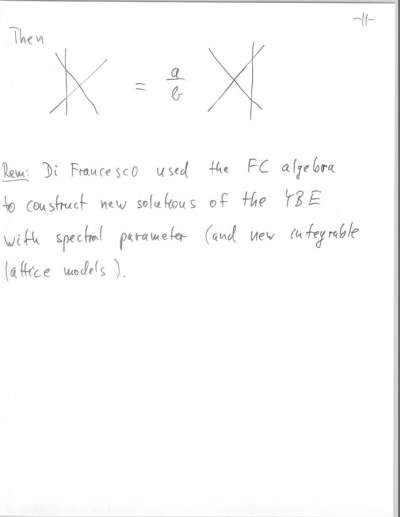 -11-
Then
= a/b
Rem: Di Francesco used the FC algebra
to construct new solutions of the YBE
with spectral parameter (and new integrable
lattice models).